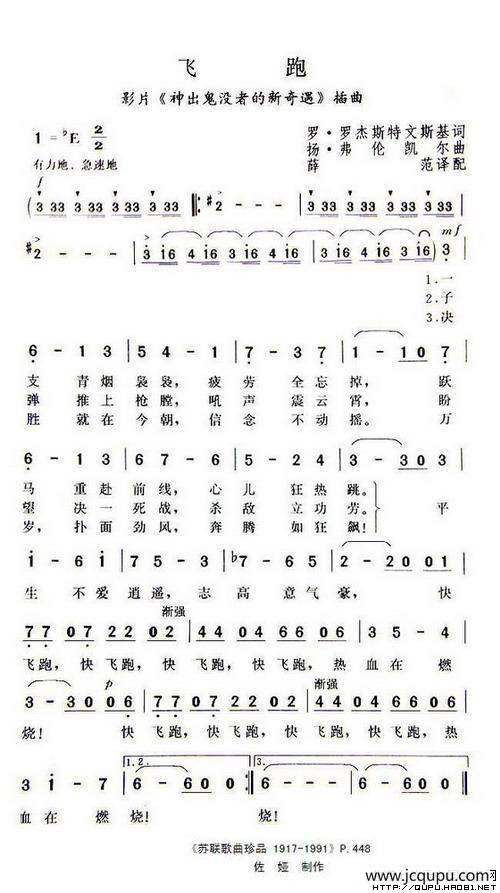 飞 跑
影片《神出鬼没者的新奇遇》插曲
1=♭E 2/2
罗·罗杰斯特文斯基词
扬·弗伦凯尔曲
薛 范译配
有力地、急速地
f
( 3 33 3 33 3 33 3 33 | #2 - - - |: 3 33 3 33 3 33 3 33 |
mf
#2 - - - | 3 i6 4 i6 3 i6 4 i6 | 3 i6 4 i6 3 i6 4 i6 ) 3 |
1.一
2.子
3.决
6 - 1 3 | 5 4 - 1 | 7 - 3 7 | 1 - 1 0 7 |
支 青烟 袅袅, 疲 劳 全忘 掉, 跃
弹 推上 枪膛, 吼 声 震云 霄, 盼
胜 就在 今朝, 信 念 不动 摇。 万
6 - 1 3 | 6 7 - 6 | 5 - 2 4 | 3 - 3 0 3 |
马 重赴 前线, 心 儿 狂热 跳。
望 决一 死战, 杀 敌 立功 劳。 平
岁, 扑面 劲风, 奔 腾 如狂 飙!
i - 6 i | 7 5 - 3 | ♭7 - 5 6 | 2 - 2 0 0 1 |
生 不爱 逍遥, 志 高 意气 豪, 快
渐强
7 7 0 7 2 2 0 2 | 4 4 0 4 6 6 0 6 | 3 5 - 4 |
飞跑, 快飞跑, 快飞跑, 快飞跑, 热血在 燃
p 渐强
3 - 3 0 0 6 | 7 7 0 7 2 2 0 2 | 4 4 0 4 6 6 0 3 |
烧! 快飞跑, 快飞跑, 快飞跑, 快飞跑, 热
1.2. 3.
3 i - 7 | 6 - 6 0 0 :| 6 - - - | 6 - 6 0 0 ||
血在 燃烧! 烧!
《苏联歌曲珍品 1917-1991》P.448
佐 娅 制作
www.jcqupu.com
HTTP://QUPU.HAO81.NET